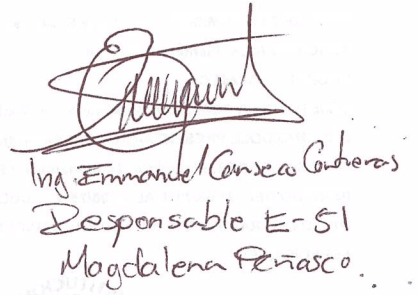 Ing. Emmanuel Canseco Contreras
Responsable E-51
Magdalena Peñasco.